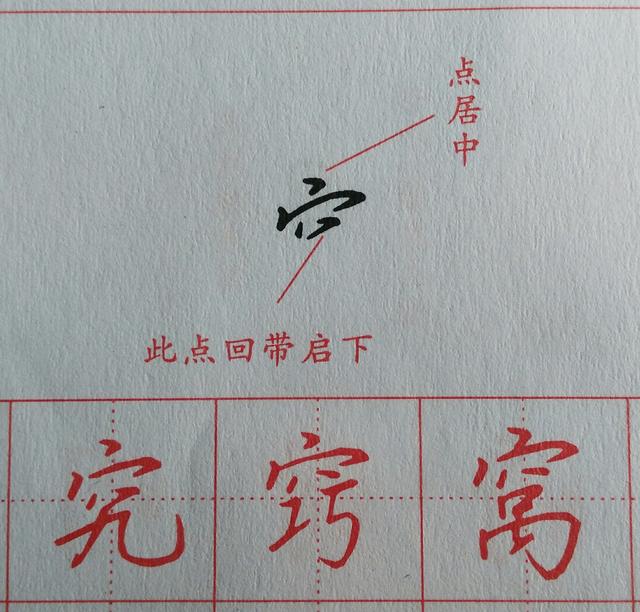 点居中
穴
此点回带启下
究窍窝